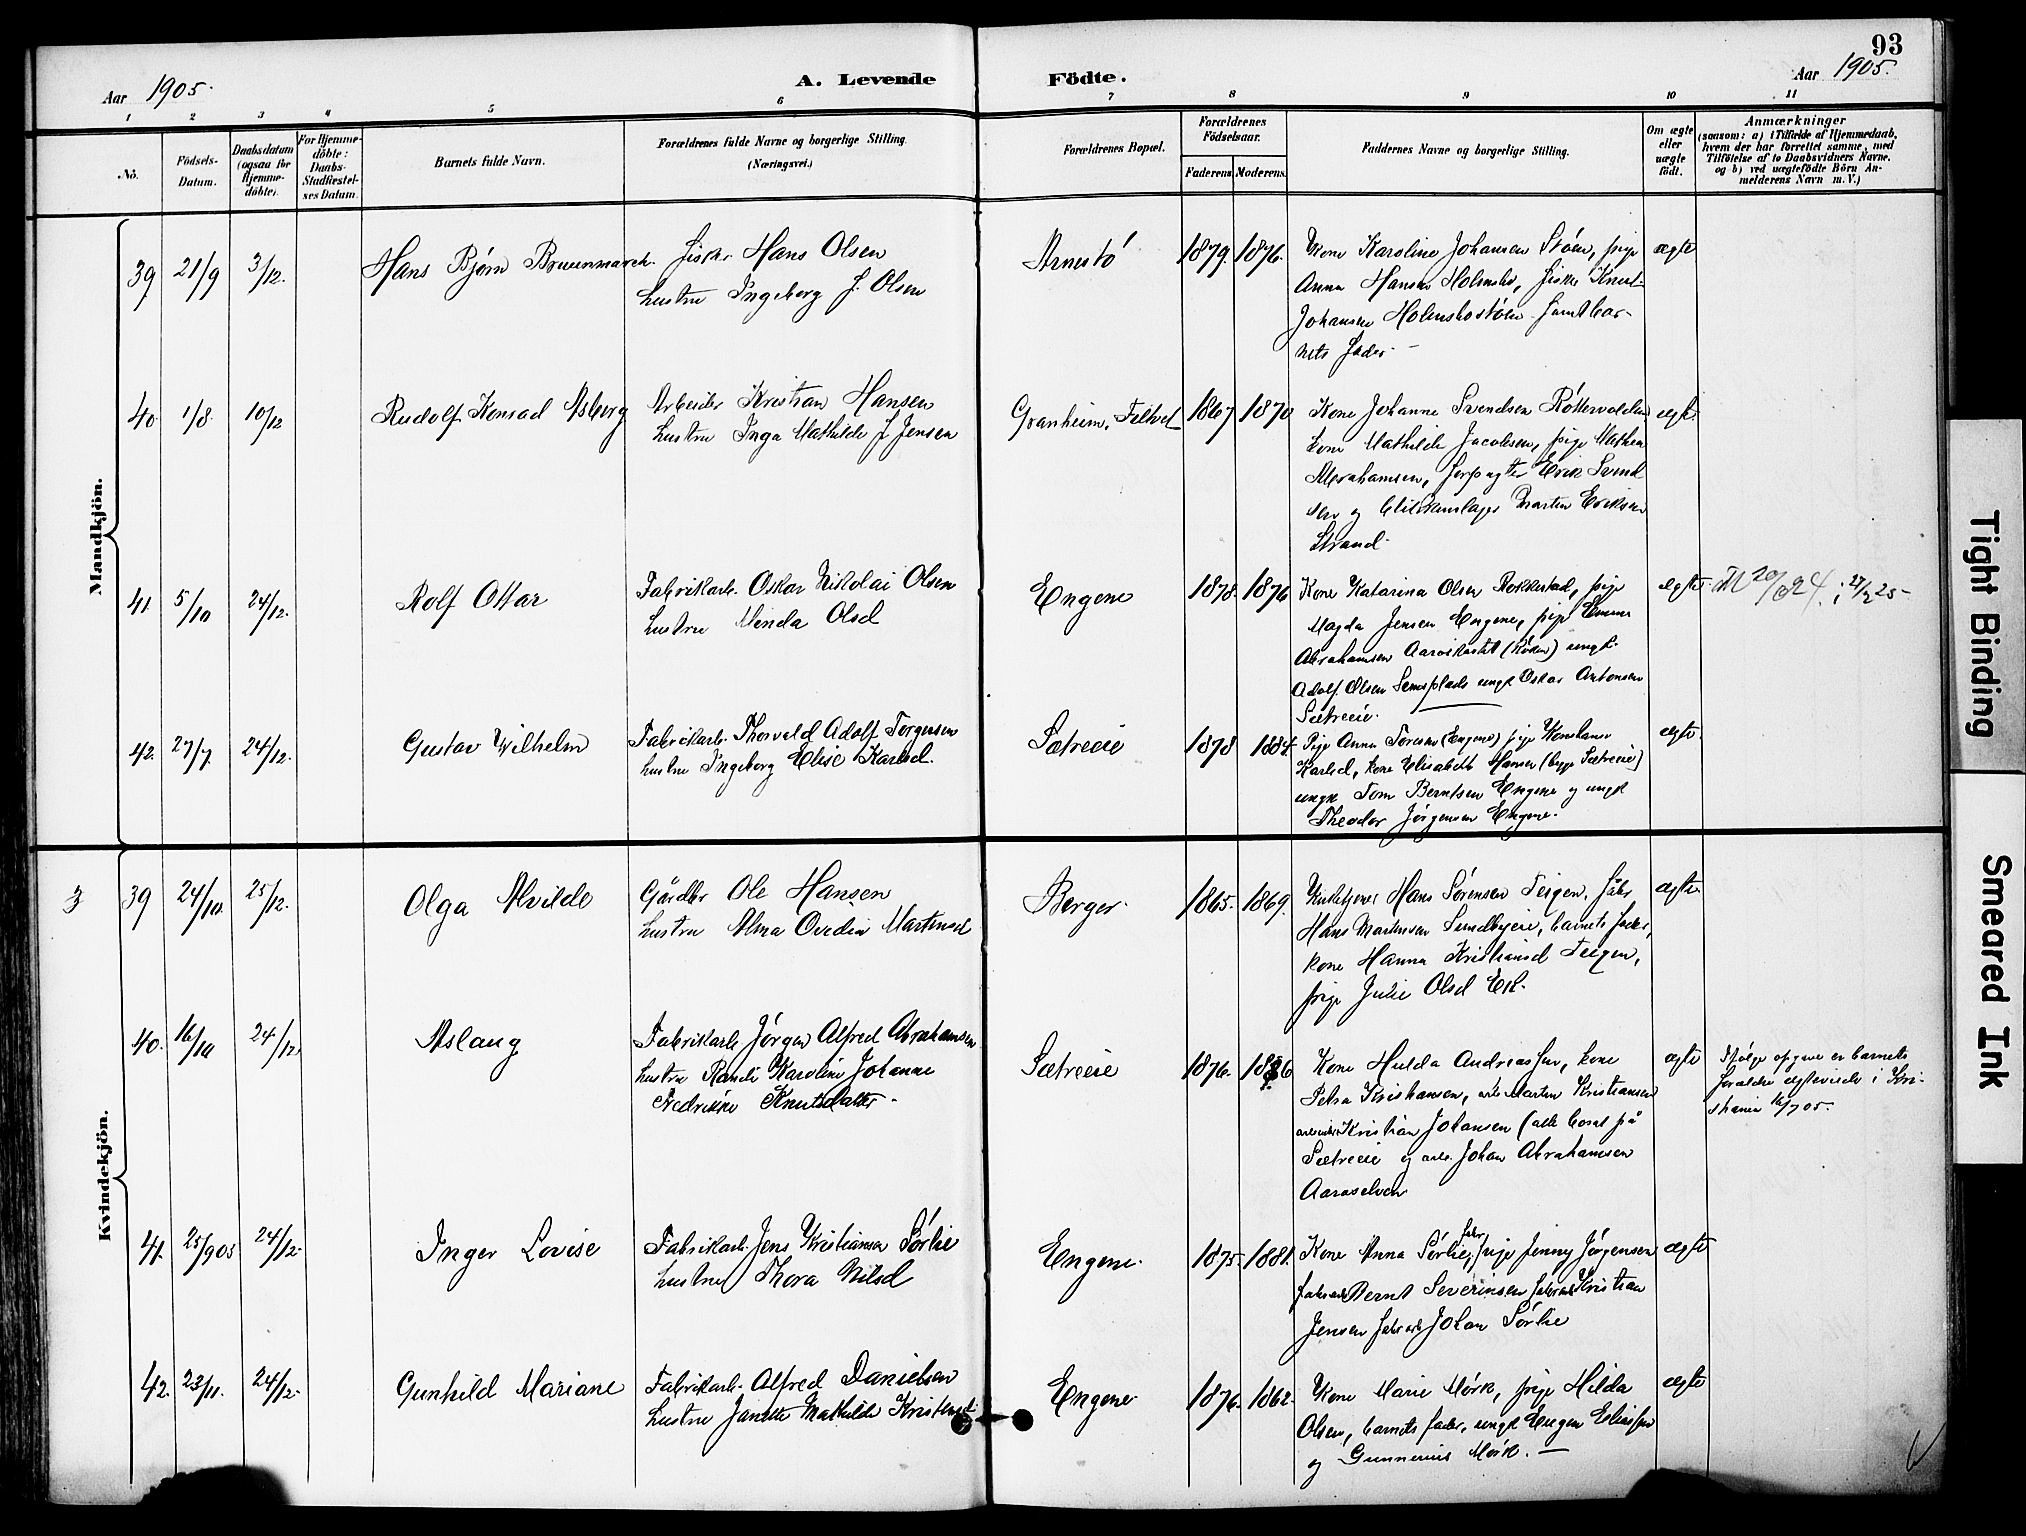 93
Aar 1905. A. Levende Födte. Aar 1905.
1 2 3 4 5 6 7 8 9 10 11
No.
Födsels-Datum.
Daabsdatum (ogsaa for Hjemme-döbte).
For Hjemme-döbte: Daabs-Stadfæstel-ses Datum.
Barnets fulde Navn.
Forældrenes fulde Navne og borgerlige Stilling.
(Næringsvei.)
Forældrenes Bopæl.
Forældrenes Födselsaar.
Faderens Moderens.
Faddernes Navne og borgerlige Stilling.
Om ægte eller uægte födt.
Anmærkninger
(saasom: a) i Tilfælde af Hjemmedaab,
hvem der har forrettet samme, med
Tilföielse af to Daabsvidners Navne.
og b) ved uægtefödte Börn An-
melderens Navn m. V.)
Mandkjön.
39 21/9 3/12. Hans Bjørn Bruunmarck. Fisker Hans Olsen
Hustru Ingeborg J. Olsen
Arnestö 1879. 1876. Kone Karoline Johansen Støen, pige
Anna Hansen Holmsbo, Fisker Knut
Johansen Holmsbostøen samt bar-
nets Fader.
ægte
40 1/8. 10/12 Rudolf Konrad Asberg Arbeider Kristian Hansen
Hustru Inga Mathilde J. Jensen
Granheim, Filtvet 1867 1870 Kone Johanne Svendsen
kone Mathilde Jacobsen, pige
Abrahamsen, Erik Svend
sen og Martin Eriksen
Strand.
ægte
41. 5/10 24/12. Rolf Ottar Fabrikarb. Oskar Nikolai Olsen
Hustru Minda Olsd
Engene 1878. 1876 Kone Katarina Olsen Rokkestad, pige
Magda Jensen Engene, pige Emma
Abrahamsen (Røken) ungk.
Adolf Olsen ungk Oskar Antonsen
Sætreeie.
ægte.
42. 27/7. 24/12. Gustav Wilhelm Fabrikarb. Thorvald Adolf Jørgensen
Hustru Ingeborg Elise Karlsd.
Sætreeie 1878 1884. Pige Anna (Engene) pige
Karlsd, kone Elisabeth Hansen (begge Sætreeie)
ungk Tom Berntsen Engene og ungk
Theodor Jørgensen Engene.
ægte.
Kvindekjön.
39 24/10. 25/12. Olga Alvilde Gårdbr Ole Hansen
Hustru Alma Ovedia Martinsd
Berger. 1865. 1869. Kirketjener Hans Sørensen Teigen,
Hans Martinsen Sundbyeie, barnets fader,
kone Hanna Kristiansd Teigen,
pige Julie Olsd Ek.
ægte.
40. 16/10 24/12 Aslaug Fabrikarb Jørgen Alfred Abrahamsen
Hustru Randi Karoline Johanne
Fredrikke Knutsdatter.
Sætreeie 1876. 1886 Kone Hulda Andreassen, kone
Petra Kristiansen, arb Martin Kristiansen
arbeider Kristian Johansen (alle bosat på
Sætreeie og arb. Johan Abrahamsen
Aaroselven
ægte
Ifølge opgave er barnets
forældre ægteviede i Kri-
stiania 16/7 05.
41. 25/9 05 24/12. Inger Lovise Fabrikarb. Jens Kristiansen Sørlie
Hustru Thora Nilsd
Engene. 1875. 1881. Kone Anna Sørlie, fabr pige Jenny Jørgensen
fabrarb Bernt Severinsen fabrarb Kristian
Jensen fabrarb Johan Sørlie
ægte
42. 23/11. 24/12. Gunhild Mariane Fabrikarb. Alfred Danielsen
Hustru Mathilde
Engene 1876. 1862. Kone Marie Mørk, pige Hilda
Olsen, barnets fader, ungk Eugen Eliassen
og Gunnerius Mørk.
ægte
Tight Binding
Smeared Ink